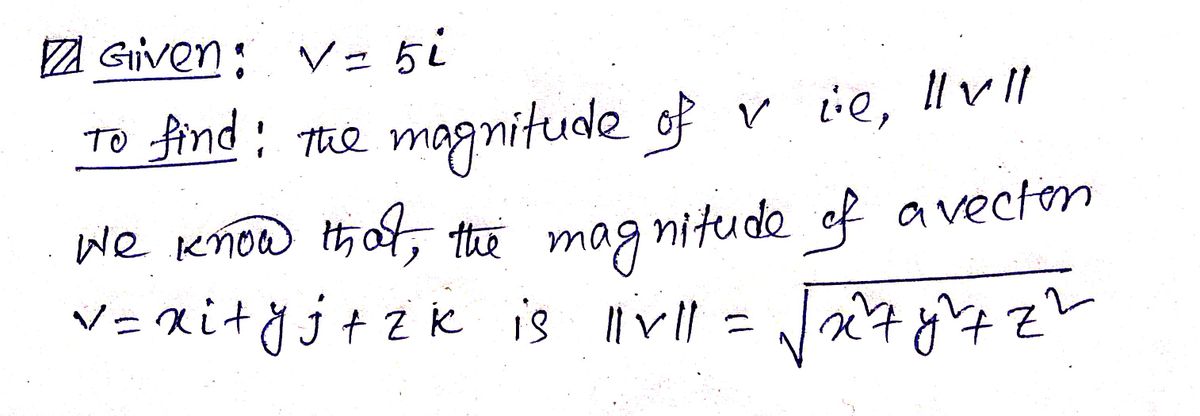 Given: v = 5i
To find: The magnitude of v i.e, ||v||
We know that, the magnitude of a vector
v = xi + yj + zk is ||v|| = √(x² + y² + z²)